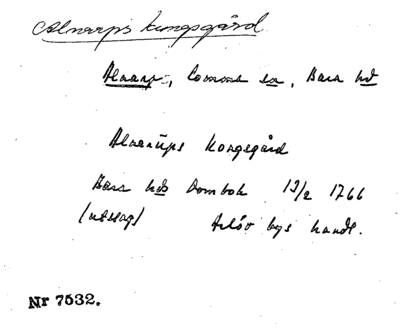 Alnarps kungsgård.
Alnarp, Lomma sn, Bara hd
Alnarups Kongsgård
Bara hds Dombok 13/2 1766
(utslag) Arlöv bys handl.
Nr 7532.